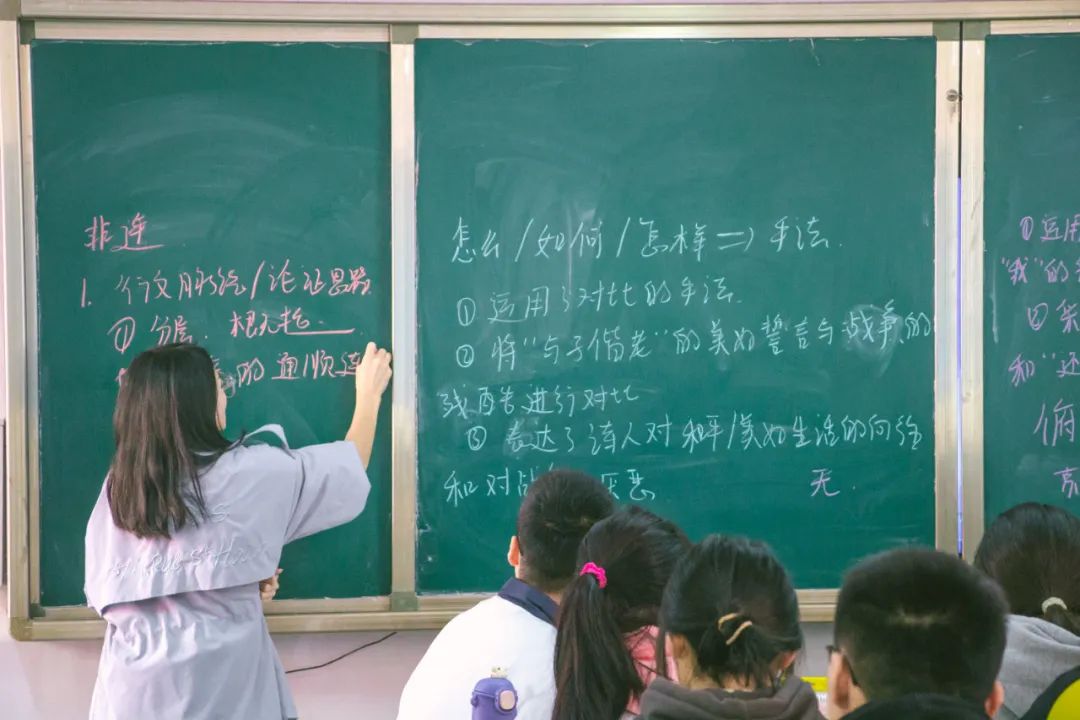 非连
1. 行文脉络/论证思路
① 分层、
的通顺连
怎么/如何/怎样⇒手法.
① 运用了对比的手法.
② 将"与子偕老"的美好誓言与战争的
残酷进行对比
③ 表达了诗人对和平/美好生活的向往
和对战 厌恶. 无.
① 运用
"我"的
②
和"还
俯